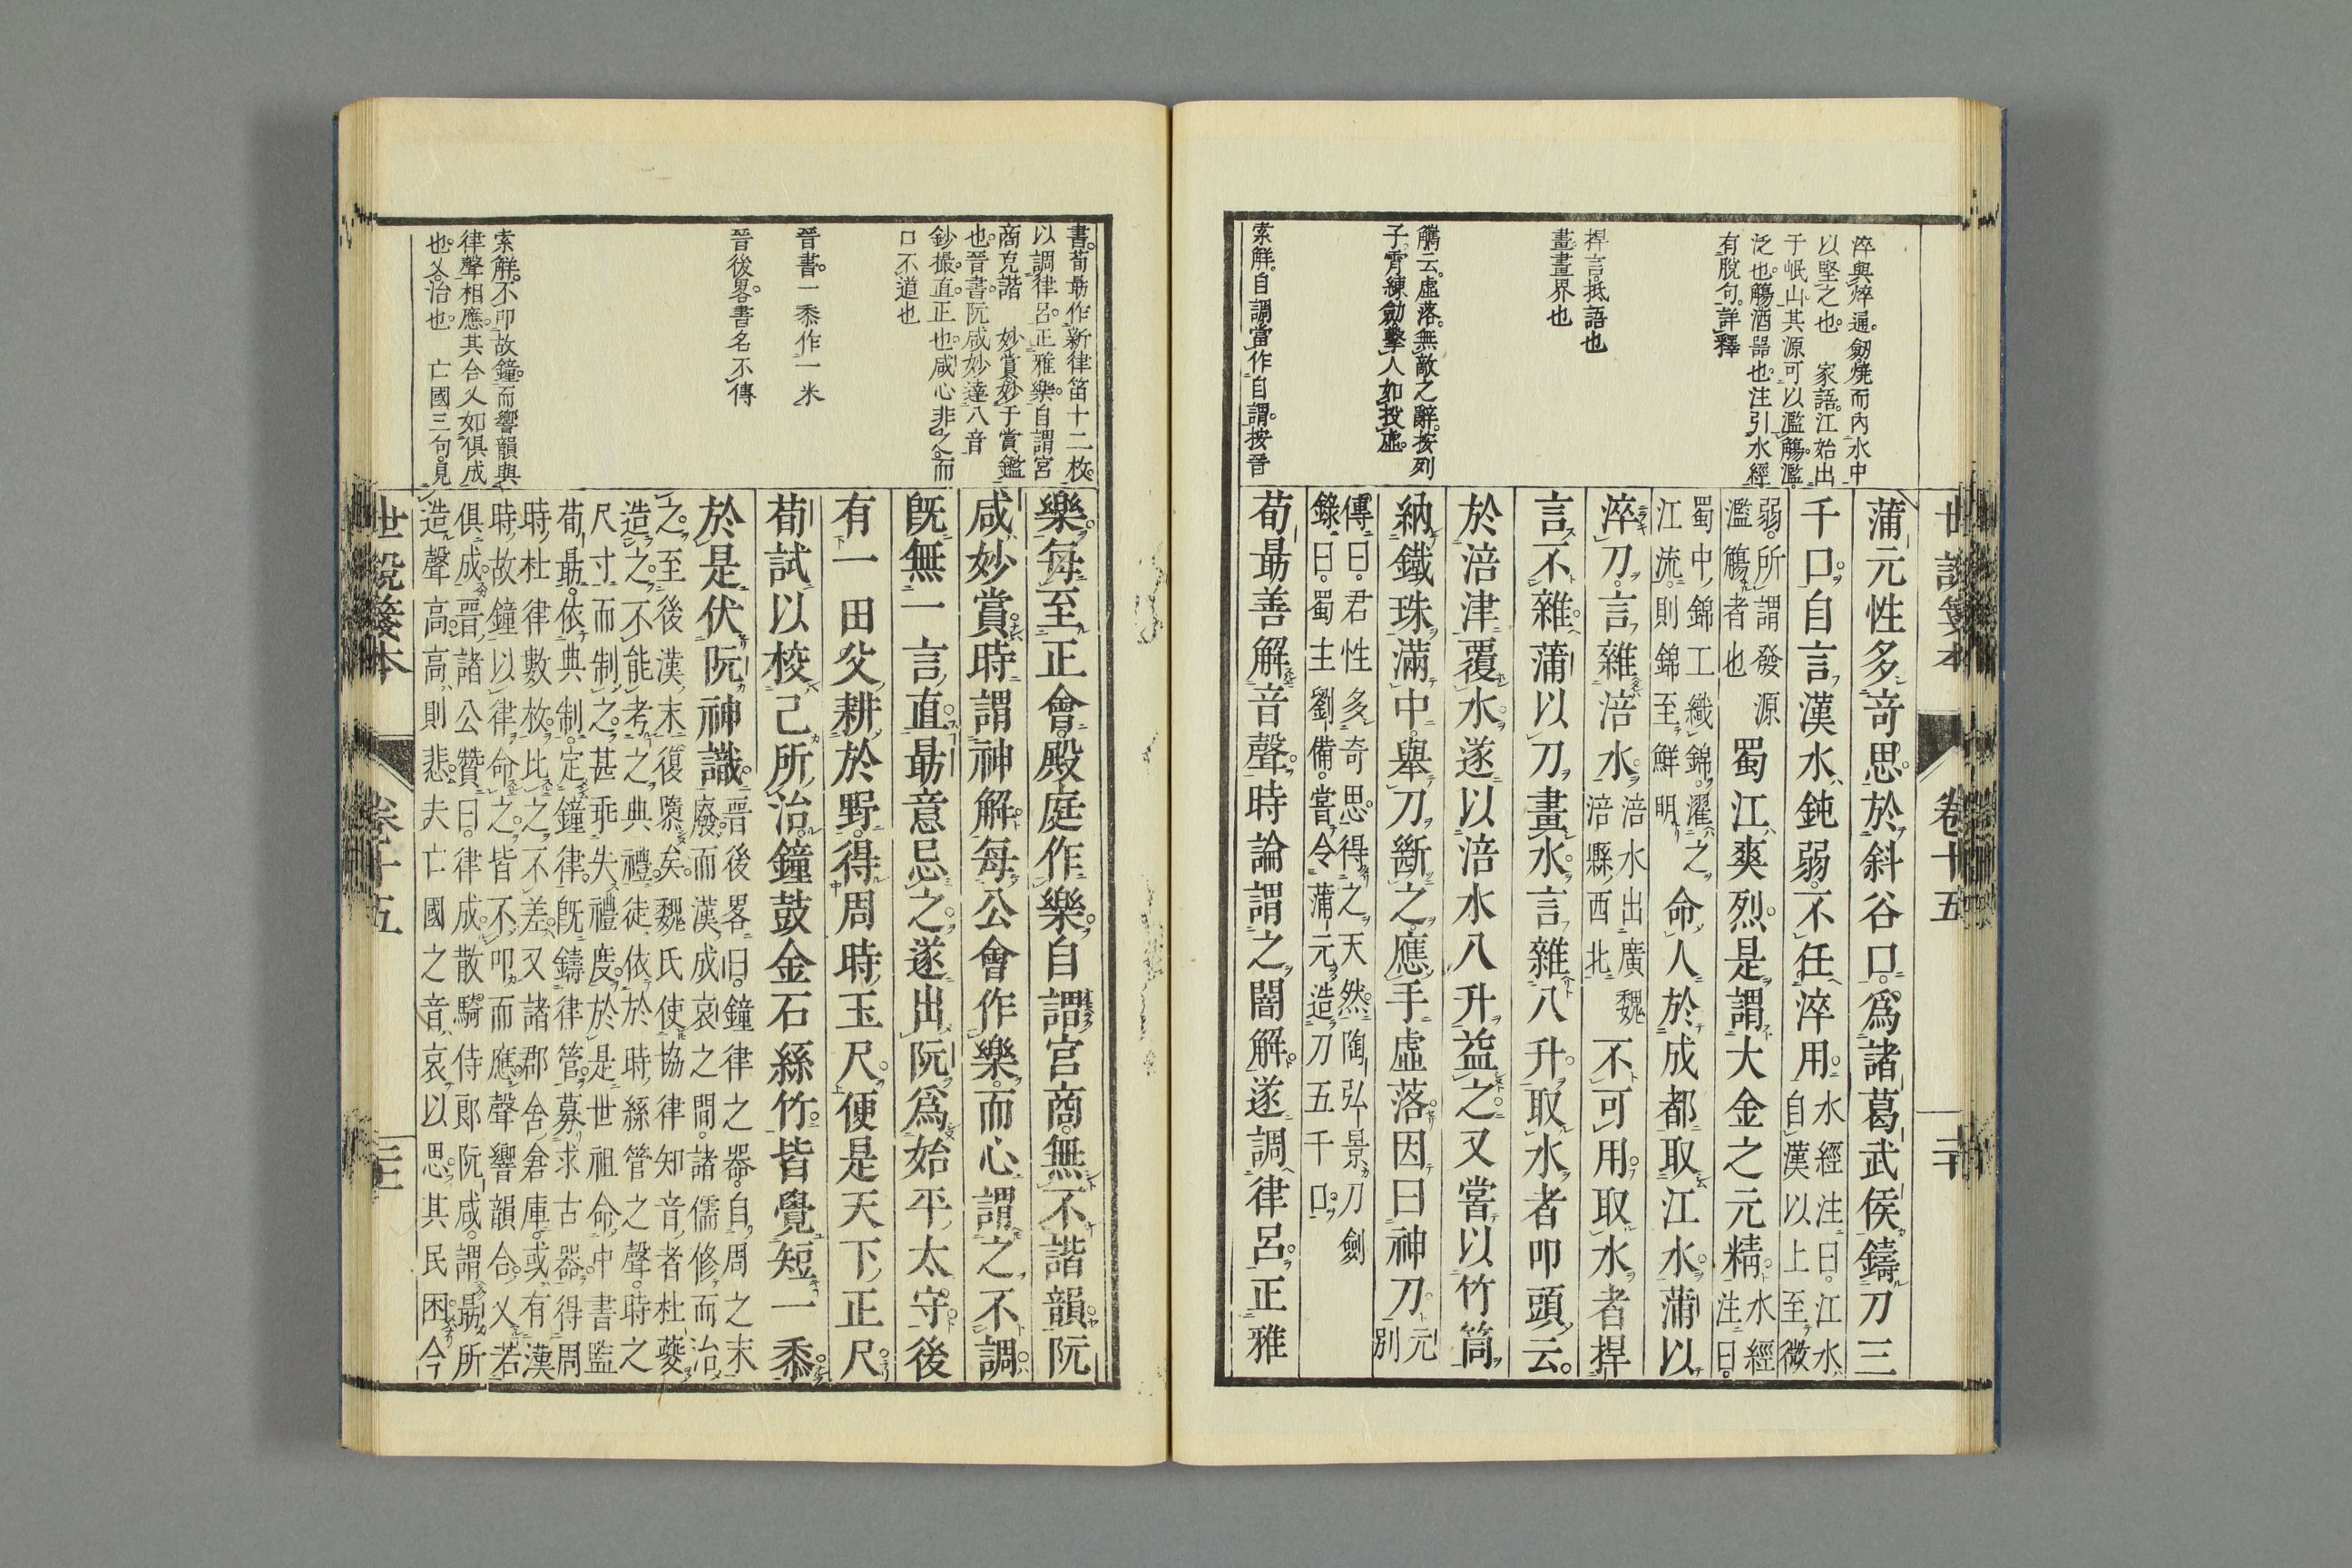 世說箋本 卷十五 二十
淬與焠通劒燒而內水中
以堅之也 家語江始出
于岷山其源可以濫觴濫
泛也觴酒器也注引水經
有脫句詳釋
捍言抵語也
畫畫界也
觿云虛落無敵之辭按列
子宵練劒擊人如投虛
索解自調當作自謂按晉
蒲元性多奇思於斜谷口爲諸葛武侯鑄刀三
千口自言漢水鈍弱不任淬用水經注曰江水自漢以上至微
弱所謂發源濫觴者也蜀江爽烈是謂大金之元精水經注曰
蜀中錦工織錦濯之江流則錦至鮮明命人於成都取江水蒲以
淬刀言雜涪水涪水出廣魏涪縣西北不可用取水者捍
言不雜蒲以刀畫水言雜八升取水者叩頭云
於涪津覆水遂以涪水八升益之又嘗以竹筒
納鐵珠滿中舉刀斷之應手虛落因曰神刀元別
傳曰君性多奇思得之天然陶弘景刀劍
錄曰蜀主劉備嘗令蒲元造刀五千口
荀勗善解音聲時論謂之闇解遂調律呂正雅
書荀勗作新律笛十二枚
以調律呂正雅樂自謂宮
商克諧 妙賞妙于賞鑑
也晉書阮咸妙達八音
鈔撮直正也咸心非之而
口不道也
晉書一黍作一米
晉後畧書名不傳
索解不叩故鐘而響韻與
律聲相應其合乂如俱成
也乂治也 亡國三句見
樂每至正會殿庭作樂自調宮商無不諧韻阮
咸妙賞時謂神解每公會作樂而心謂之不調
旣無一言直勗意忌之遂出阮爲始平太守後
有一田父耕於野得周時玉尺便是天下正尺
荀試以校己所治鐘鼓金石絲竹皆覺短一黍
於是伏阮神識晉後畧曰鐘律之器自周之末廢而漢成哀之間諸儒修而治
之至後漢末復隳矣魏氏使協律知音者杜夔
造之不能考之典禮徒依於時絲管之聲時之
尺寸而制之甚乖失禮度於是世祖命中書監
荀勗依典制定鐘律旣鑄律管募求古器得周
時杜律數枚比之不差又諸郡舍倉庫或有漢
時故鐘以律命之皆不叩而應聲響韻合乂若
俱成晉諸公贊曰律成散騎侍郎阮咸謂勗所
造聲高高則悲夫亡國之音哀以思其民困今
世說箋本 卷十五